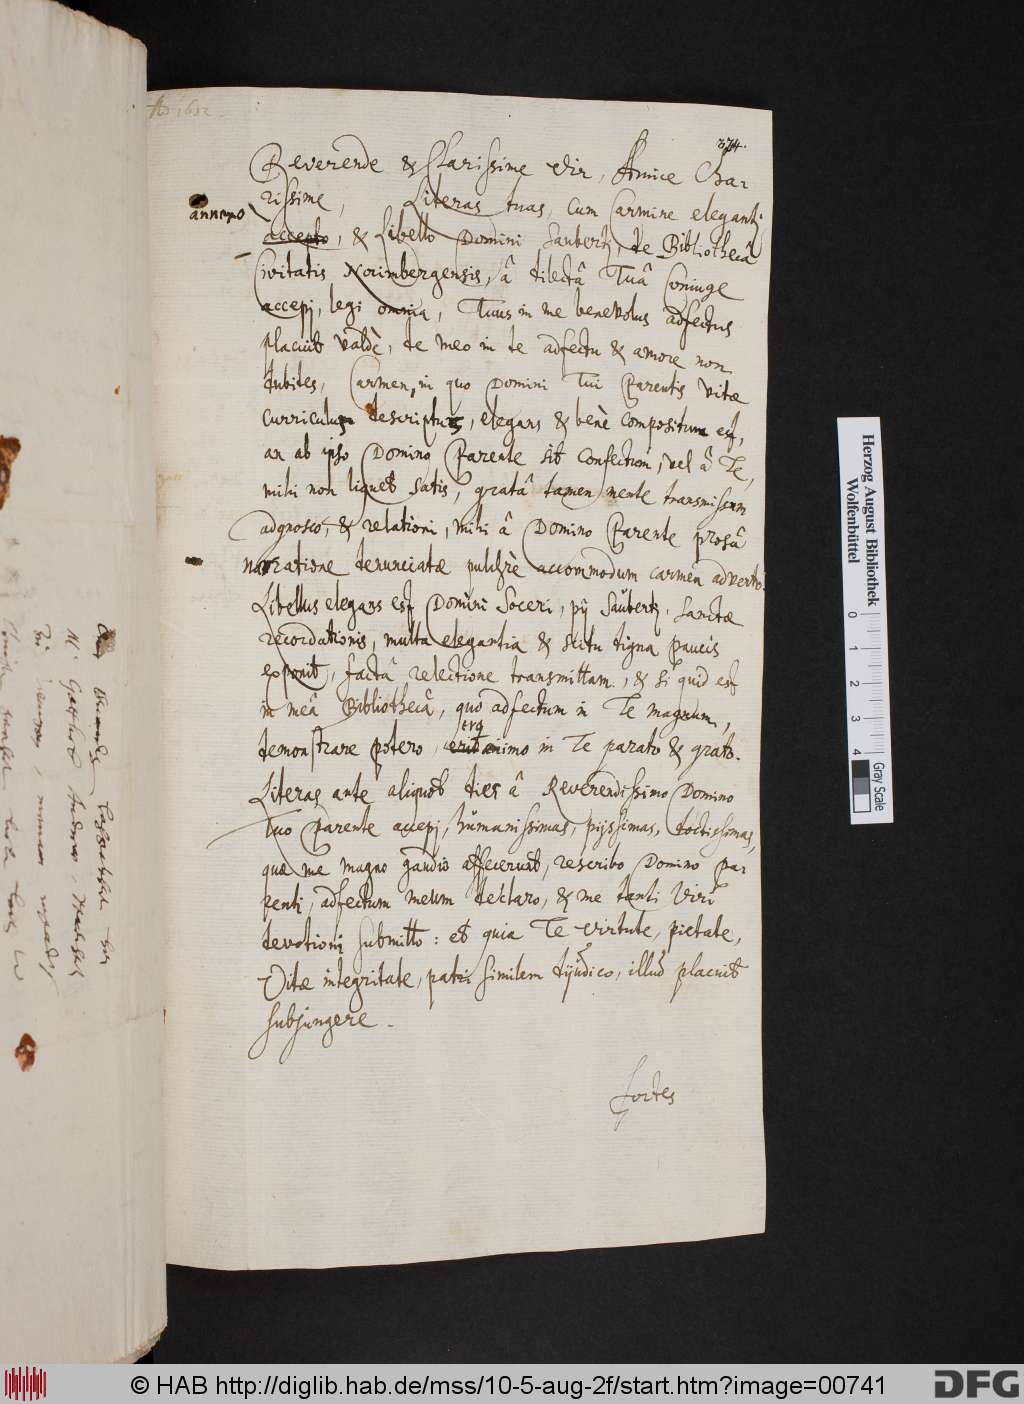 Ao 1652
374.
Reverende & Clarissime Vir, Amice Cha-
rissime, Literas tuas, cum Carmine eleganti
annexo
accepto, & Libello Domini Sauberti, de Bibliothecâ
Civitatis Norimbergensis, â dilectâ Tuâ Coniuge
accepj, legi omnia, Tuus in me benevolus adfectus
placuit valdè, de meo in te adfectu & amore non
dubites, Carmen, in quo Domini Tui Parentis vitæ
curriculum descriptum, elegans & benè compositum est,
an ab ipso Domino Parente sit confectum, vel â Te,
mihi non liquet satis, gratâ tamen mente transmissum
adgnosco, & relationi, mihi â Domino Parente prosâ
narratione denunciatæ pulchrè accommodum carmen adverto.
Libellus elegans est Domini Soceri, pij Sauberti, sanctæ
recordationis, multa elegantia & scitu digna paucis
exponit, factâ relectione transmittam, & si quid est
in meâ Bibliothecâ, quo adfectum in Te magnum,
demonstrare potero, erit animo in Te parato & grato.
Literas ante aliquot dies â Reverendissimo Domino
Tuo Parente accepj, humanissimas, pijssimas, doctissimas,
quæ me magno gaudio affecerunt, rescribo Domino Pa-
renti, adfectum meum declaro, & me tanti Viri
devotioni submitto: et quia Te virtute, pietate,
Vitæ integritate, patri similem dijudico, illud placuit
subjungere.
Fortes
Herzog August Bibliothek
Wolfenbüttel
0 1 2 3 4
Gray Scale
© HAB http://diglib.hab.de/mss/10-5-aug-2f/start.htm?image=00741
DFG